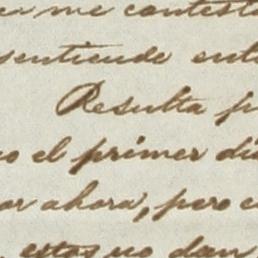 me contest
sentiende ent
Resulta p
o el primer di
or ahora, pero e
estos no dan